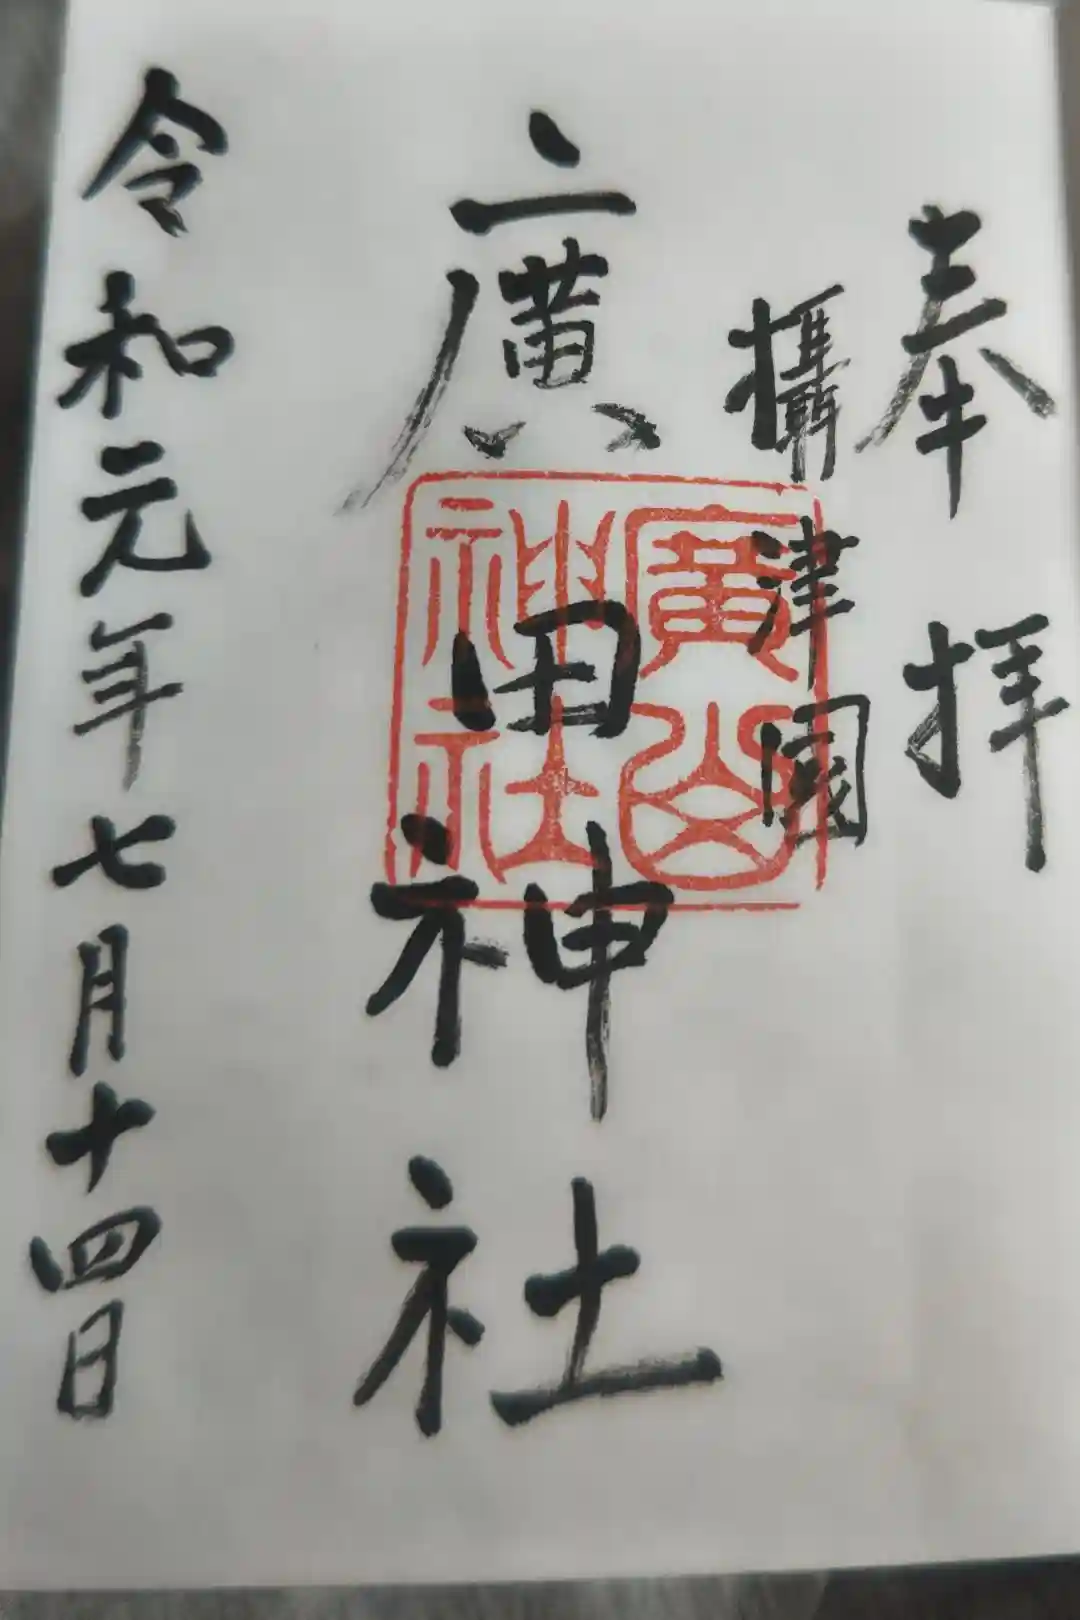 奉拝
攝津國
廣田神社
令和元年七月十四日
廣
神社